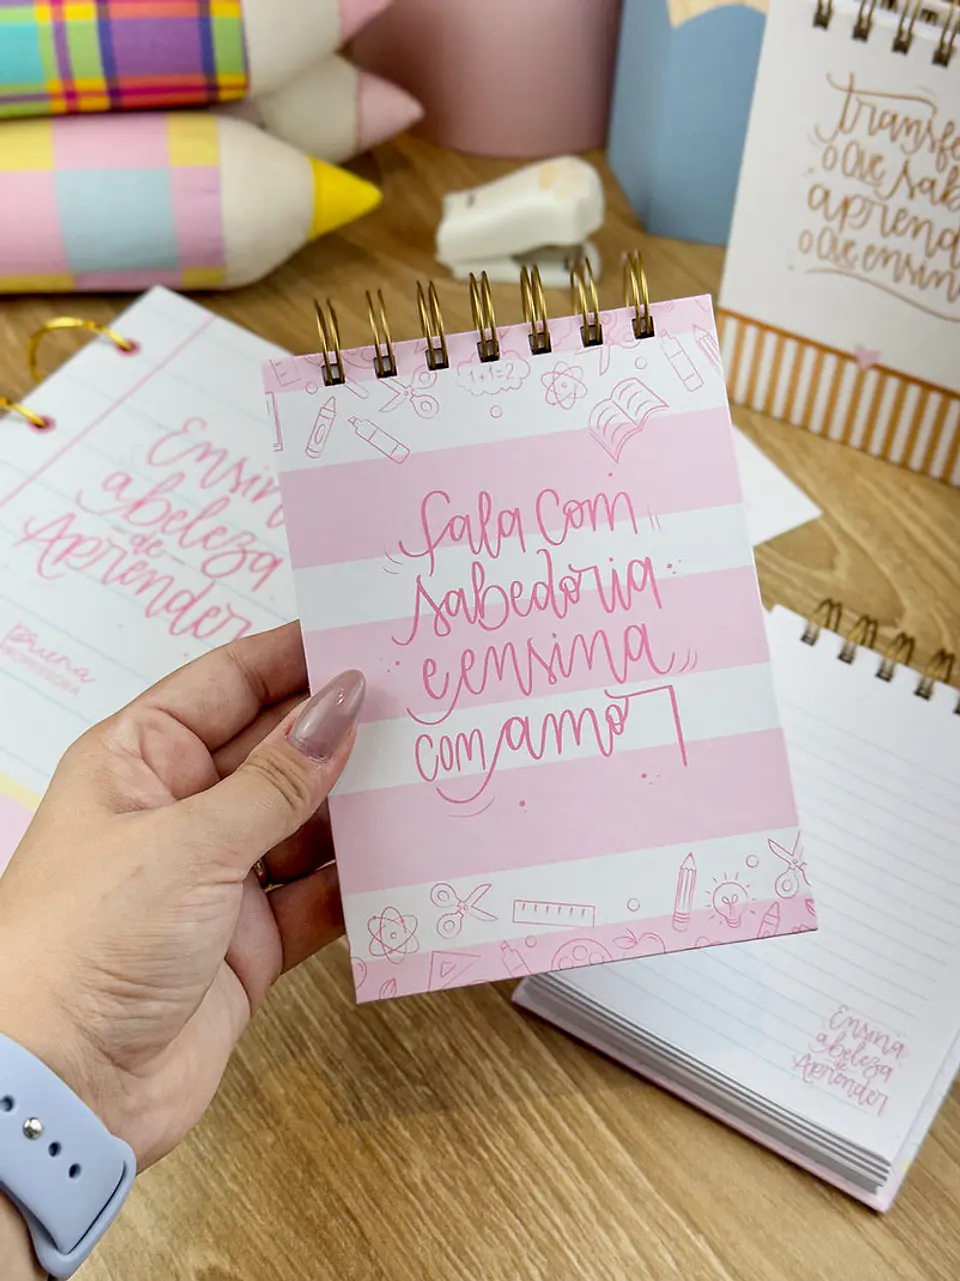 transfe
o que sab
aprend
o que ensin
1+1=2
Fala com
sabedoria
e ensina
com amor
Ensin
a beleza
de
Aprender
Bruna
PROFESSORA
Ensina
a beleza
de
Aprender